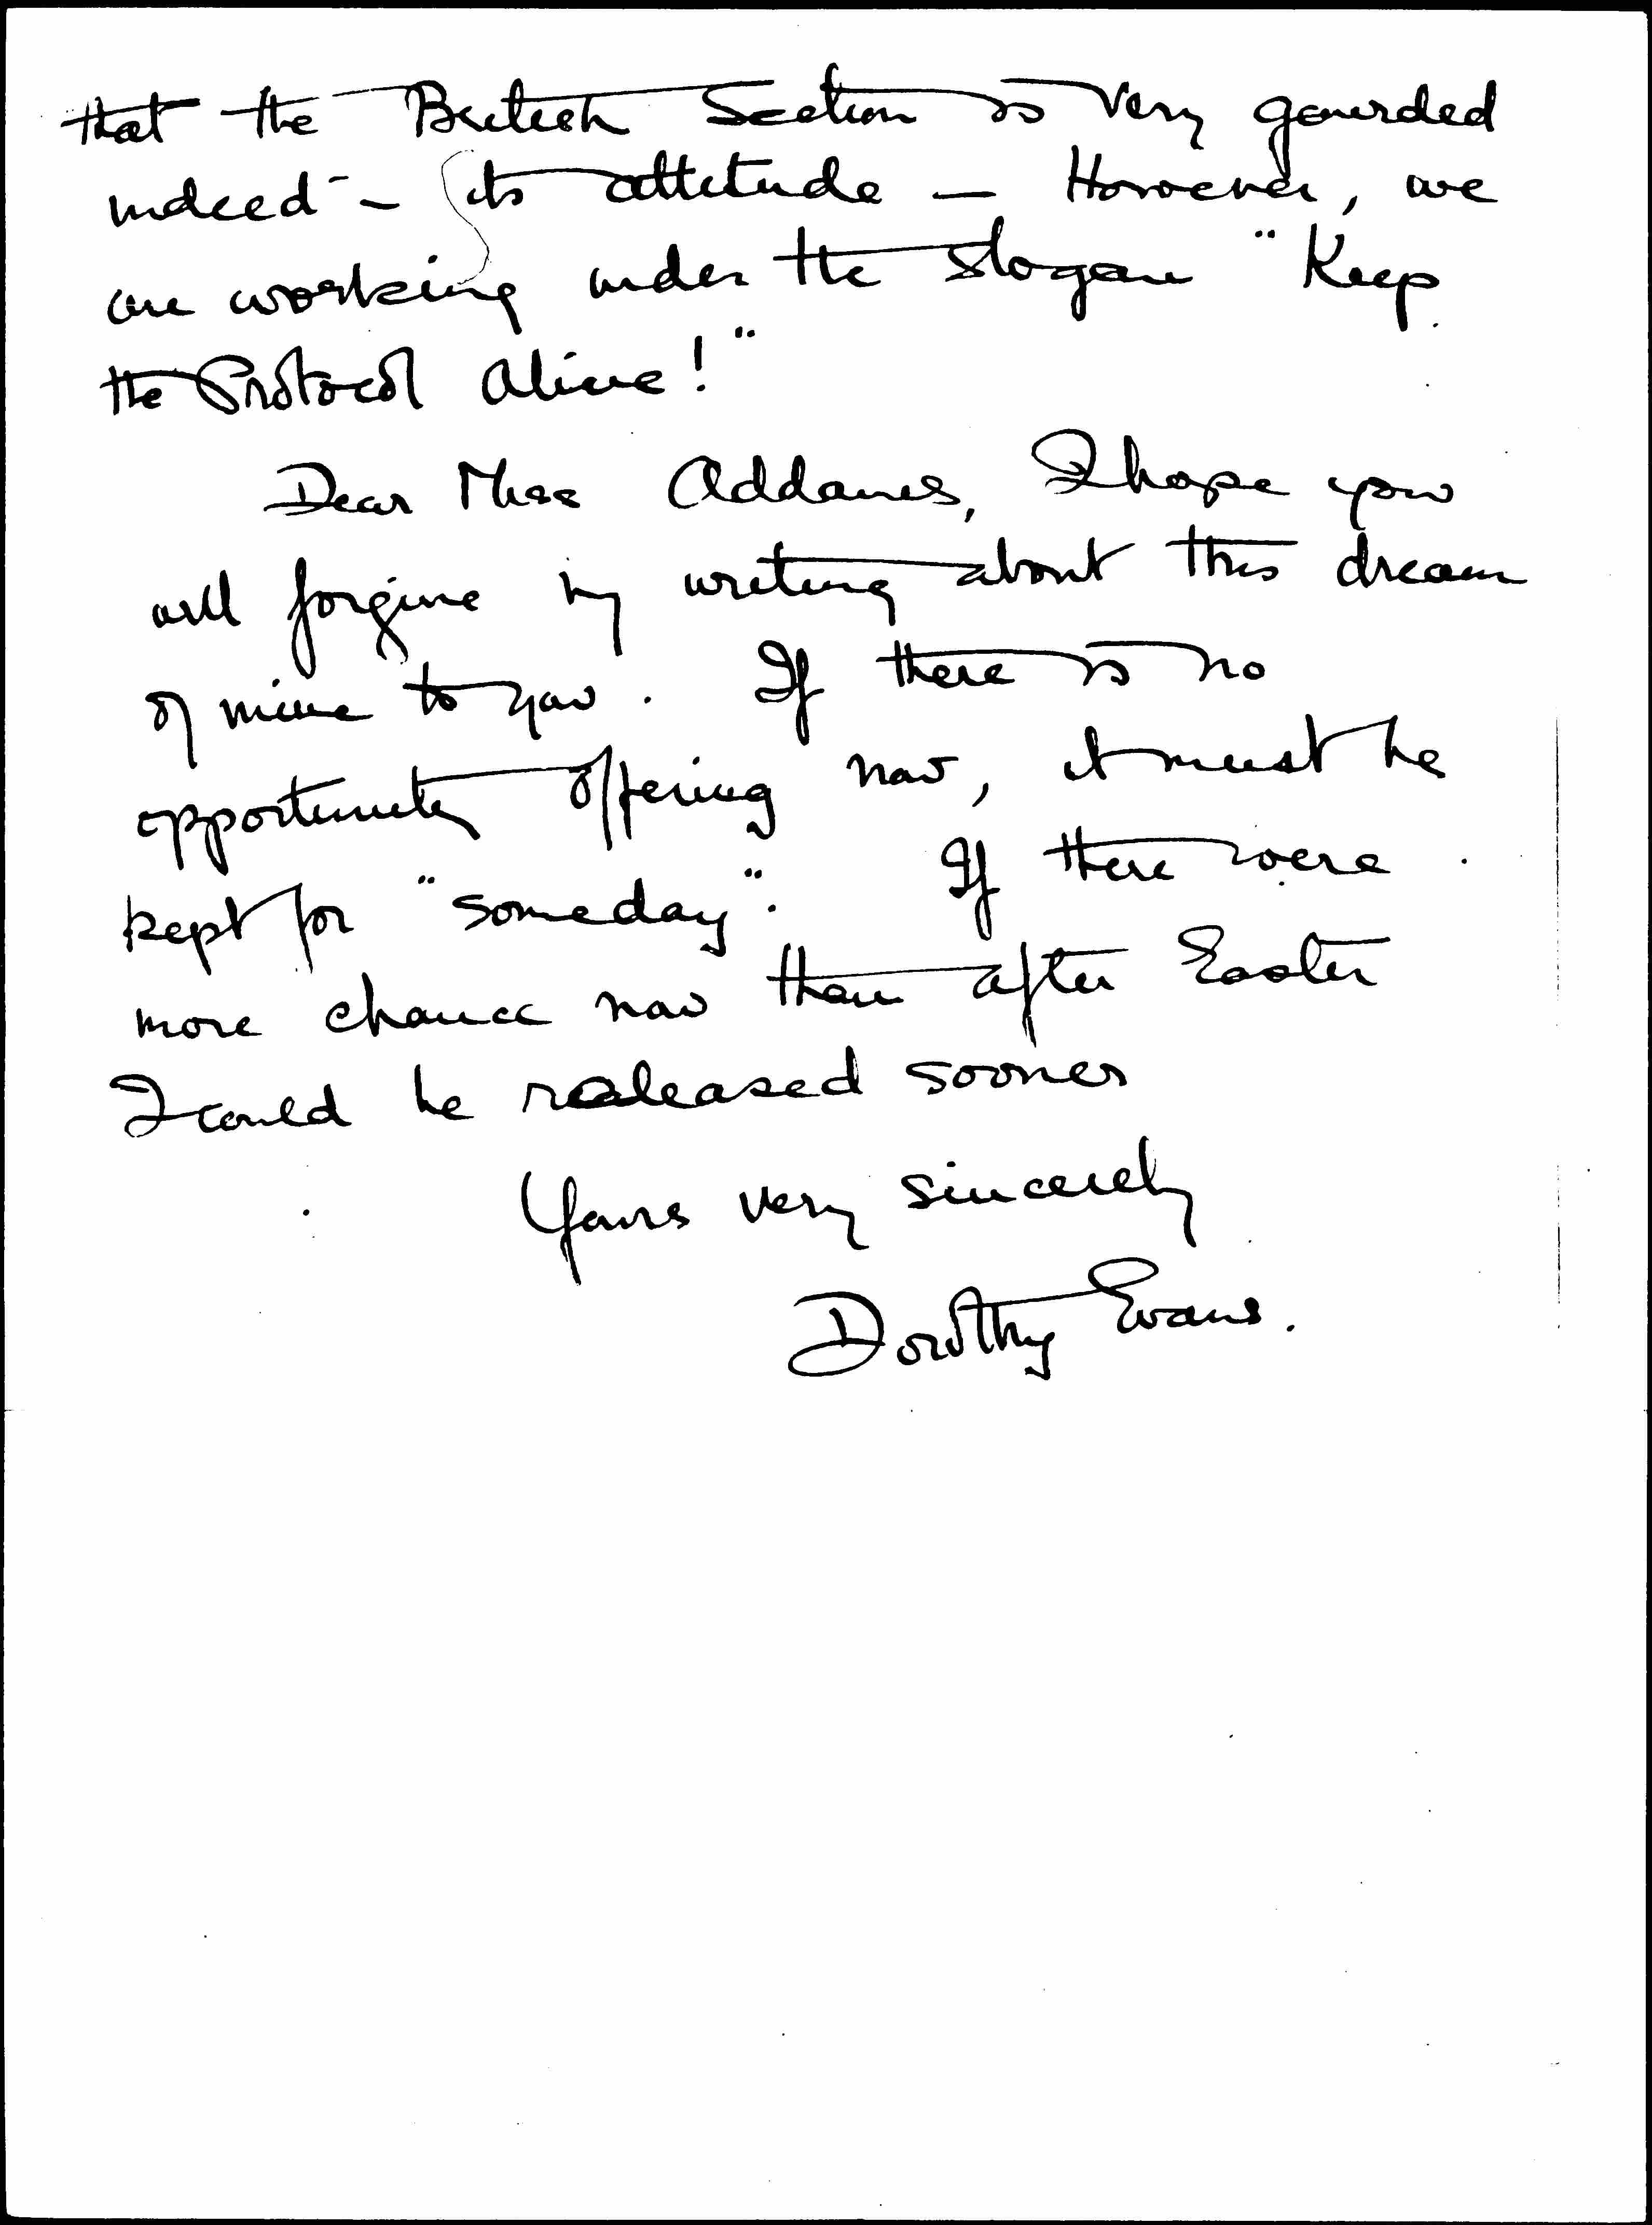 that the British Section is very gaurded
indeed - its attitude - However, we
are working under the slogan "Keep
the Protocol alive!"
Dear Miss Addams, I hope you
will forgive my writing about this dream
of mine to you. If there is no
opportunity offering now, it must be
kept for "someday". If there were
more chance now than after Easter
I could be realeased sooner
Yours very sincerely
Dorothy Evans.